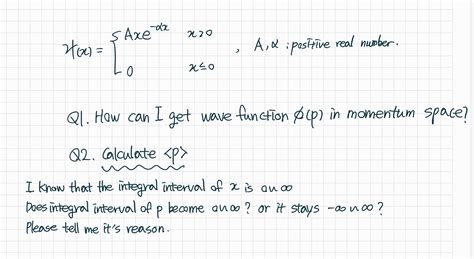 ψ(x) = { Axe^{-αx} x≥0 , A, α : positive real number.
0 x≤0
Q1. How can I get wave function ϕ(p) in momentum space?
Q2. Calculate <p>
I know that the integral interval of x is 0 ~ ∞
Does integral interval of p become 0 ~ ∞ ? or it stays -∞ ~ ∞ ?
Please tell me it's reason.